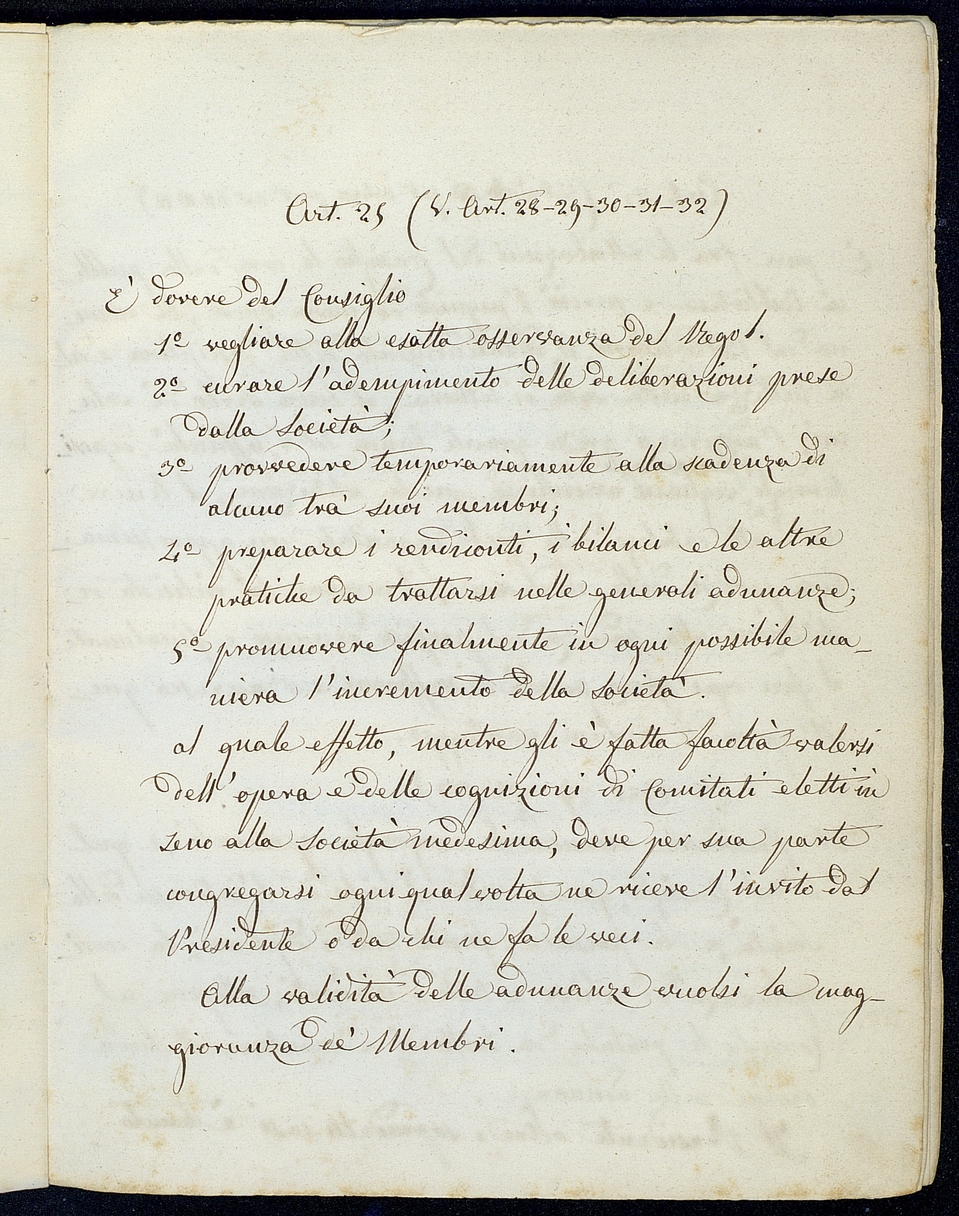 Art. 25 (V. Art. 28-29-30-31-32)
È dovere del Consiglio
1º vegliare alla esatta osservanza del Regol.
2º curare l'adempimento delle deliberazioni prese
dalla Società;
3º provvedere temporariamente alla scadenza di
alcuno trà suoi membri;
4º preparare i rendiconti, i bilanci e le altre
pratiche da trattarsi nelle generali adunanze;
5º promuovere finalmente in ogni possibile ma-
niera l'incremento della Società.
al quale effetto, mentre gli è fatta facoltà valersi
dell'opera e delle cognizioni di Comitati eletti in
seno alla Società medesima, deve per sua parte
congregarsi ogni qual volta ne riceve l'invito dal
Presidente o da chi ne fa le veci.
Alla validità delle adunanze vuolsi la mag-
gioranza de' Membri.